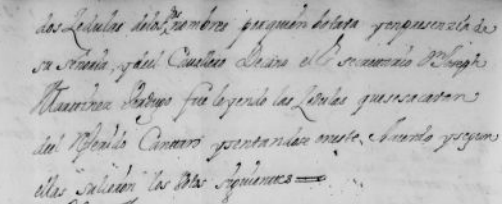 dos Zedulas delos nombres por quien botara y en presenzia de
su señoria, y del Cavallero Decano el secretario Dn Joseph
Martinez fue leyendo las Zedulas que se sacaron
del Cantaro y sentandose en este Asiento y segun
ellas salieron los botos siguientes =